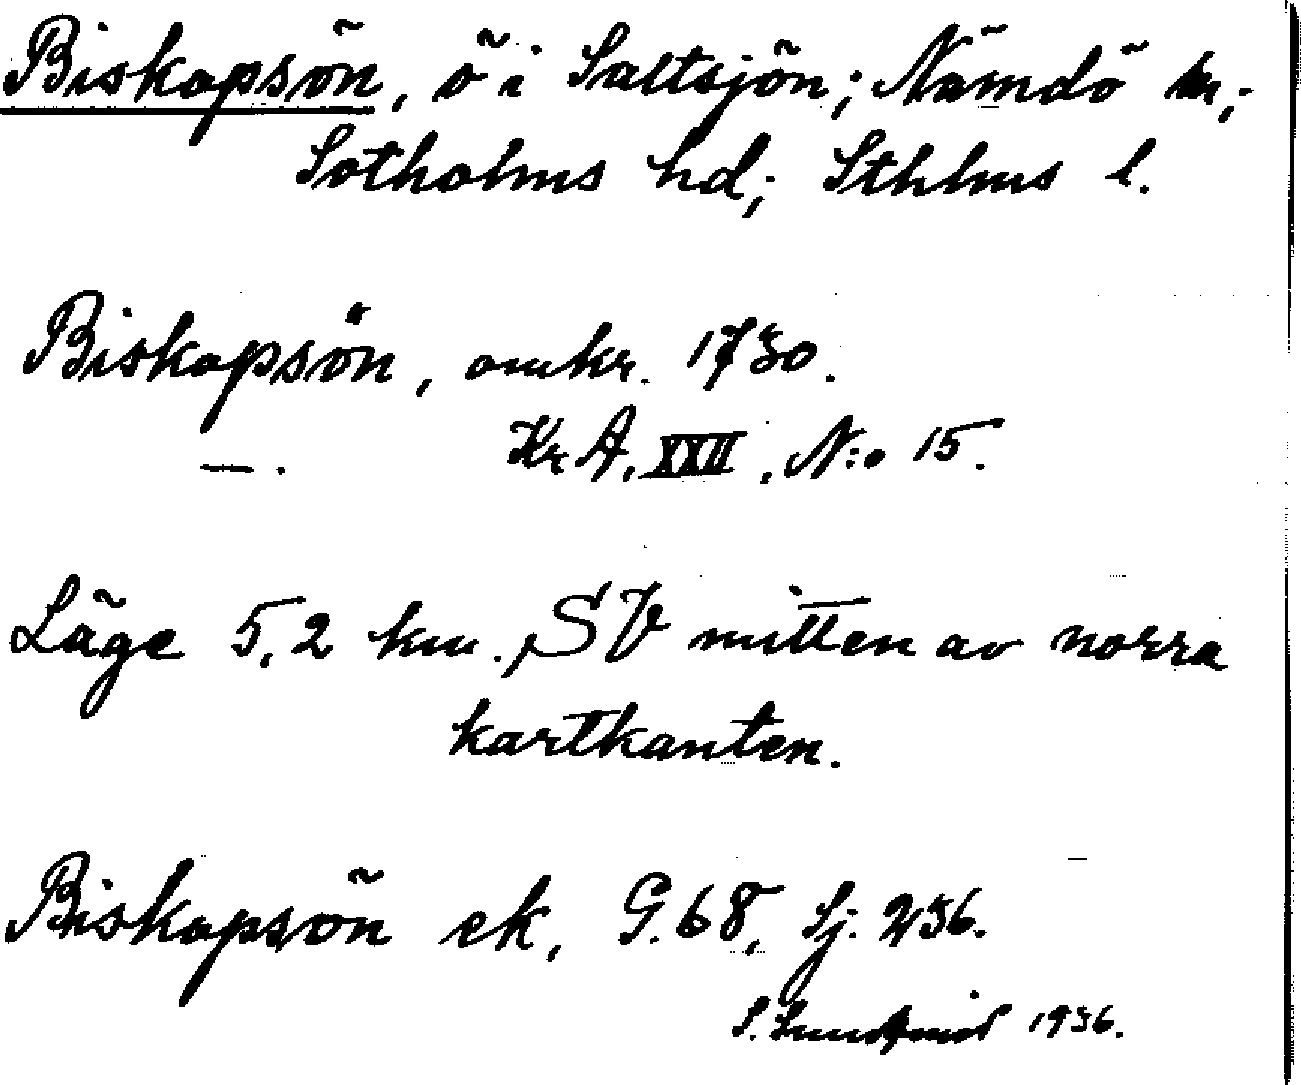 Biskopsön, ö i Saltsjön; Nämdö sn;
Sotholms hd; Sthlms l.
Biskopsön, omkr. 1730.
—. Kr A. XXII, N:o 15.
Läge 5,2 km. SV mitten av norra
kartkanten.
Biskopsön ek, G. 68, Sj. 236.
S. 1936.